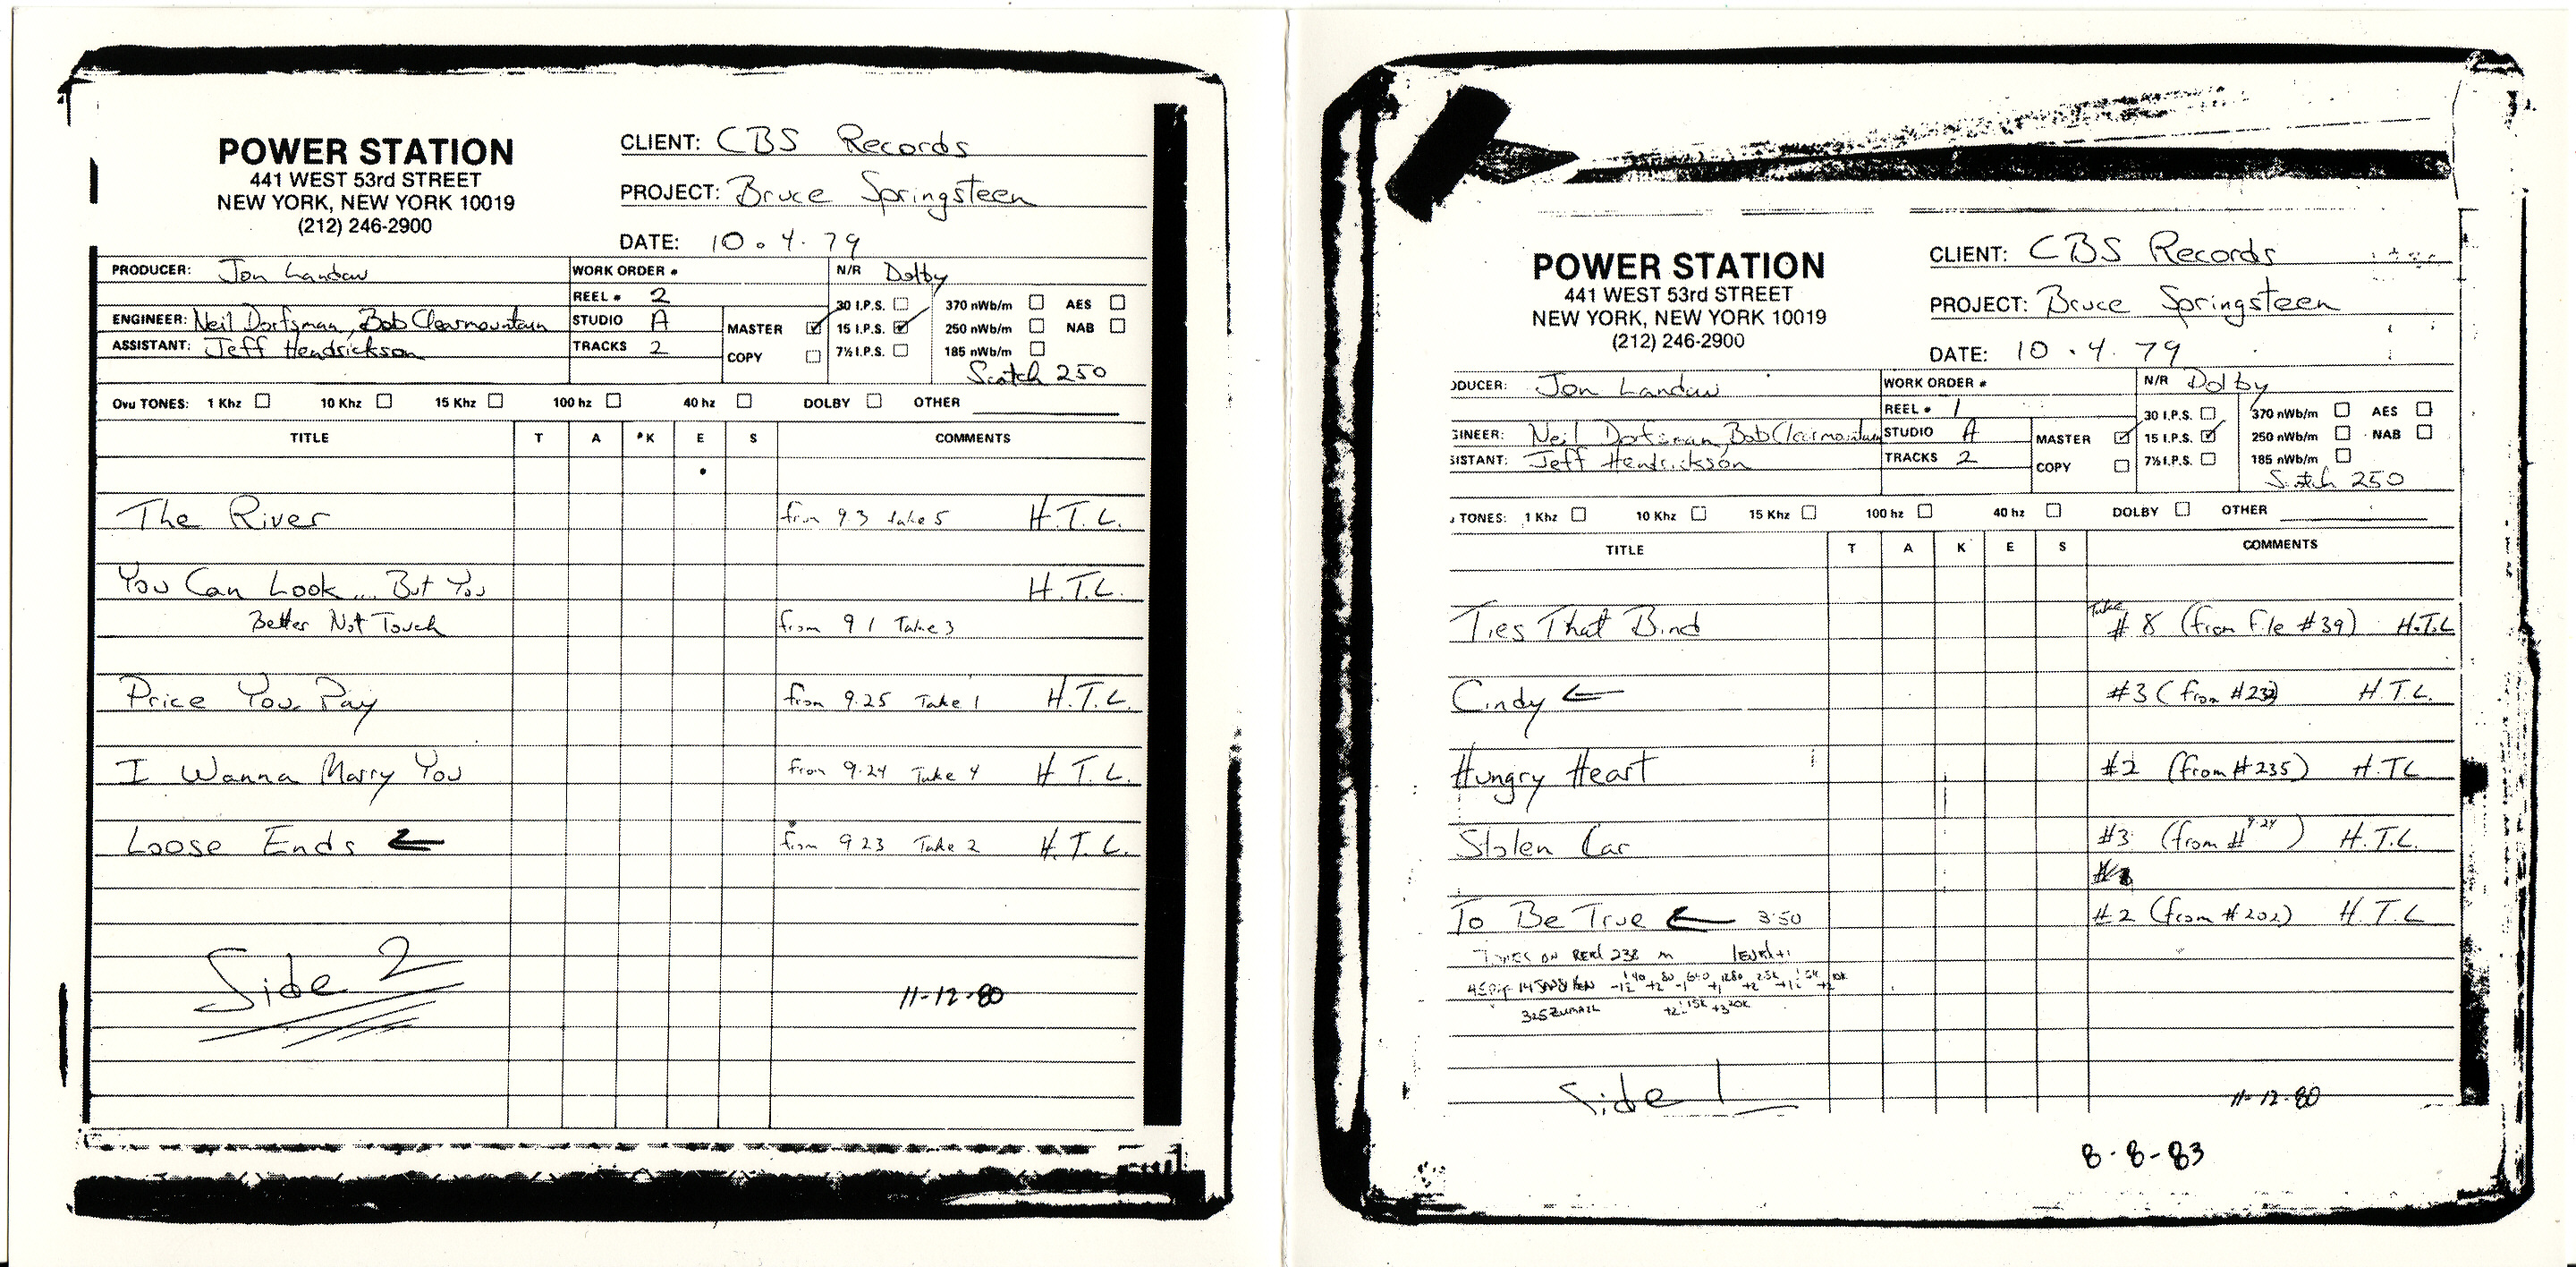 POWER STATION
441 WEST 53rd STREET
NEW YORK, NEW YORK 10019
(212) 246-2900
CLIENT: CBS Records
PROJECT: Bruce Springsteen
DATE: 10.4.79
PRODUCER: Jon Landau
WORK ORDER #
N/R Dolby
REEL # 2
30 I.P.S. 370 nWb/m AES
ENGINEER: Neil Dorfsman, Bob Clearmountain
STUDIO A
MASTER 15 I.P.S. 250 nWb/m NAB
ASSISTANT: Jeff Hendrickson
TRACKS 2
COPY 7½ I.P.S. 185 nWb/m
Scotch 250
Ovu TONES: 1 Khz 10 Khz 15 Khz 100 hz 40 hz DOLBY OTHER
TITLE T A K E S COMMENTS
The River from 9.3 take 5 H.T.L.
You Can Look.... But You H.T.L.
Better Not Touch from 9 1 Take 3
Price You Pay from 9.25 Take 1 H.T.L.
I Wanna Marry You from 9.24 Take 4 H T.L.
Loose Ends ← from 9 23 Take 2 H.T.L.
Side 2
11-12-80
POWER STATION
441 WEST 53rd STREET
NEW YORK, NEW YORK 10019
(212) 246-2900
CLIENT: CBS Records
PROJECT: Bruce Springsteen
DATE: 10.4.79
ODUCER: Jon Landau
WORK ORDER #
N/R Dolby
REEL # 1
30 I.P.S. 370 nWb/m AES
GINEER: Neil Dorfsman, Bob Clearmountain
STUDIO A
MASTER 15 I.P.S. 250 nWb/m NAB
SISTANT: Jeff Hendrickson
TRACKS 2
COPY 7½ I.P.S. 185 nWb/m
Scotch 250
TONES: 1 Khz 10 Khz 15 Khz 100 hz 40 hz DOLBY OTHER
TITLE T A K E S COMMENTS
Ties That Bind Take #8 (from file #39) H.T.L
Cindy ← #3 (from #232) H.T.L.
Hungry Heart #2 (from #235) H.TL
Stolen Car #3 (from # 9.24) H.T.L.
To Be True ← 3:50 #2 (from #202) H.T.L
TONES ON REEL 238 level +1
Side 1
11-12-80
8-8-83